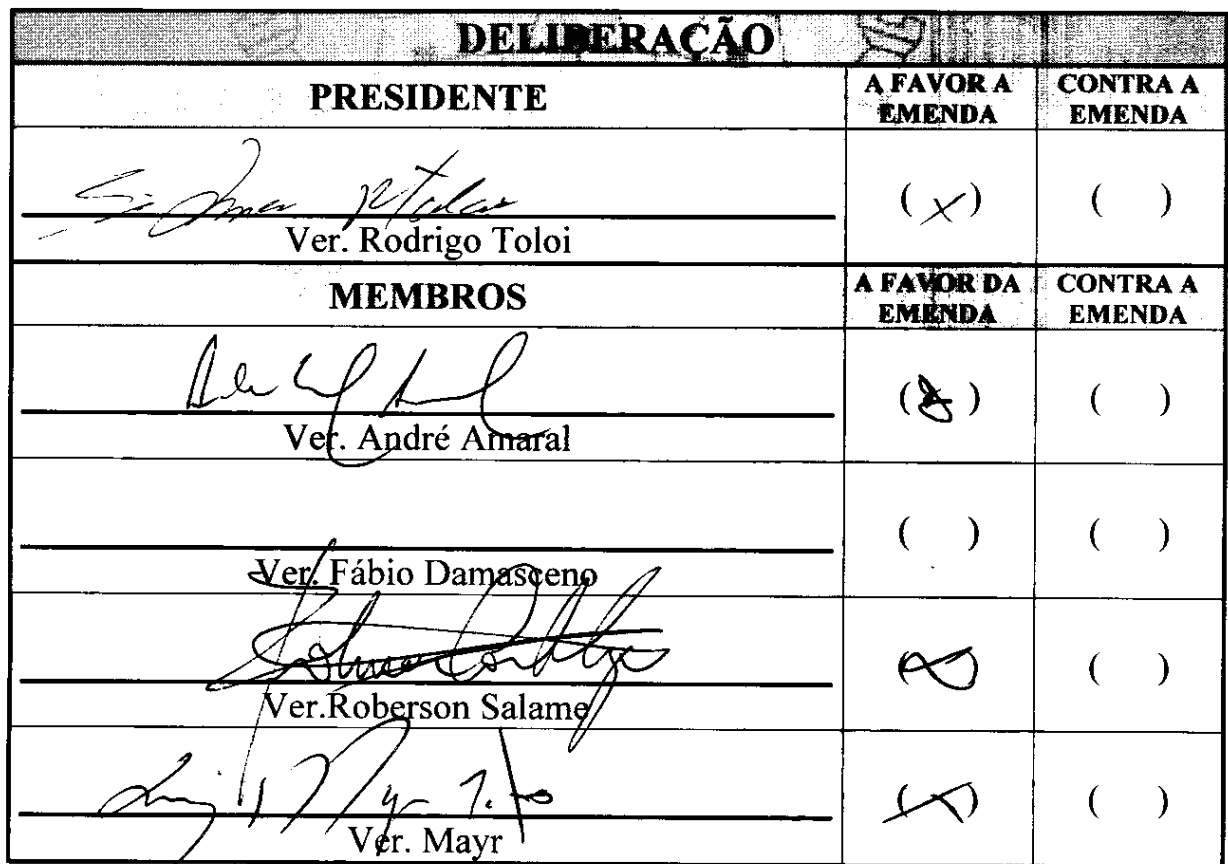 DELIBERAÇÃO
PRESIDENTE
A FAVOR A
EMENDA
CONTRA A
EMENDA
( X ) ( )
Ver. Rodrigo Toloi
MEMBROS
A FAVOR DA
EMENDA
CONTRA A
EMENDA
( X ) ( )
Ver. André Amaral
( ) ( )
Ver. Fábio Damasceno
( X ) ( )
Ver.Roberson Salame
( X ) ( )
Ver. Mayr